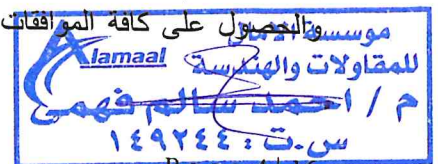 والحصول على كافة الموافقات
موسسة الامال
Alamaal
للمقاولات والهندسة
م / احمد سالم فهمى
س.ت : ١٤٩٢٤٤